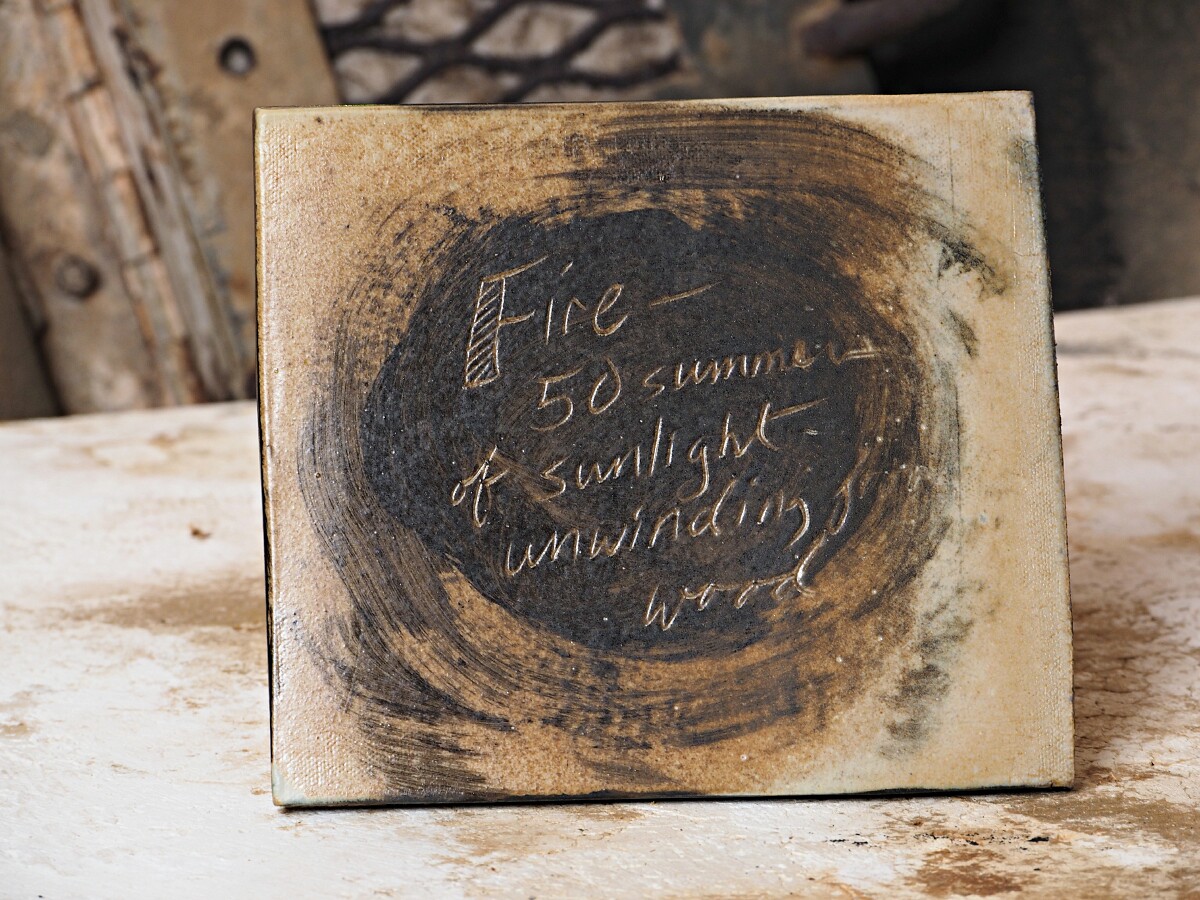 Fire —
50 summer
of sunlight
unwinding from
wood